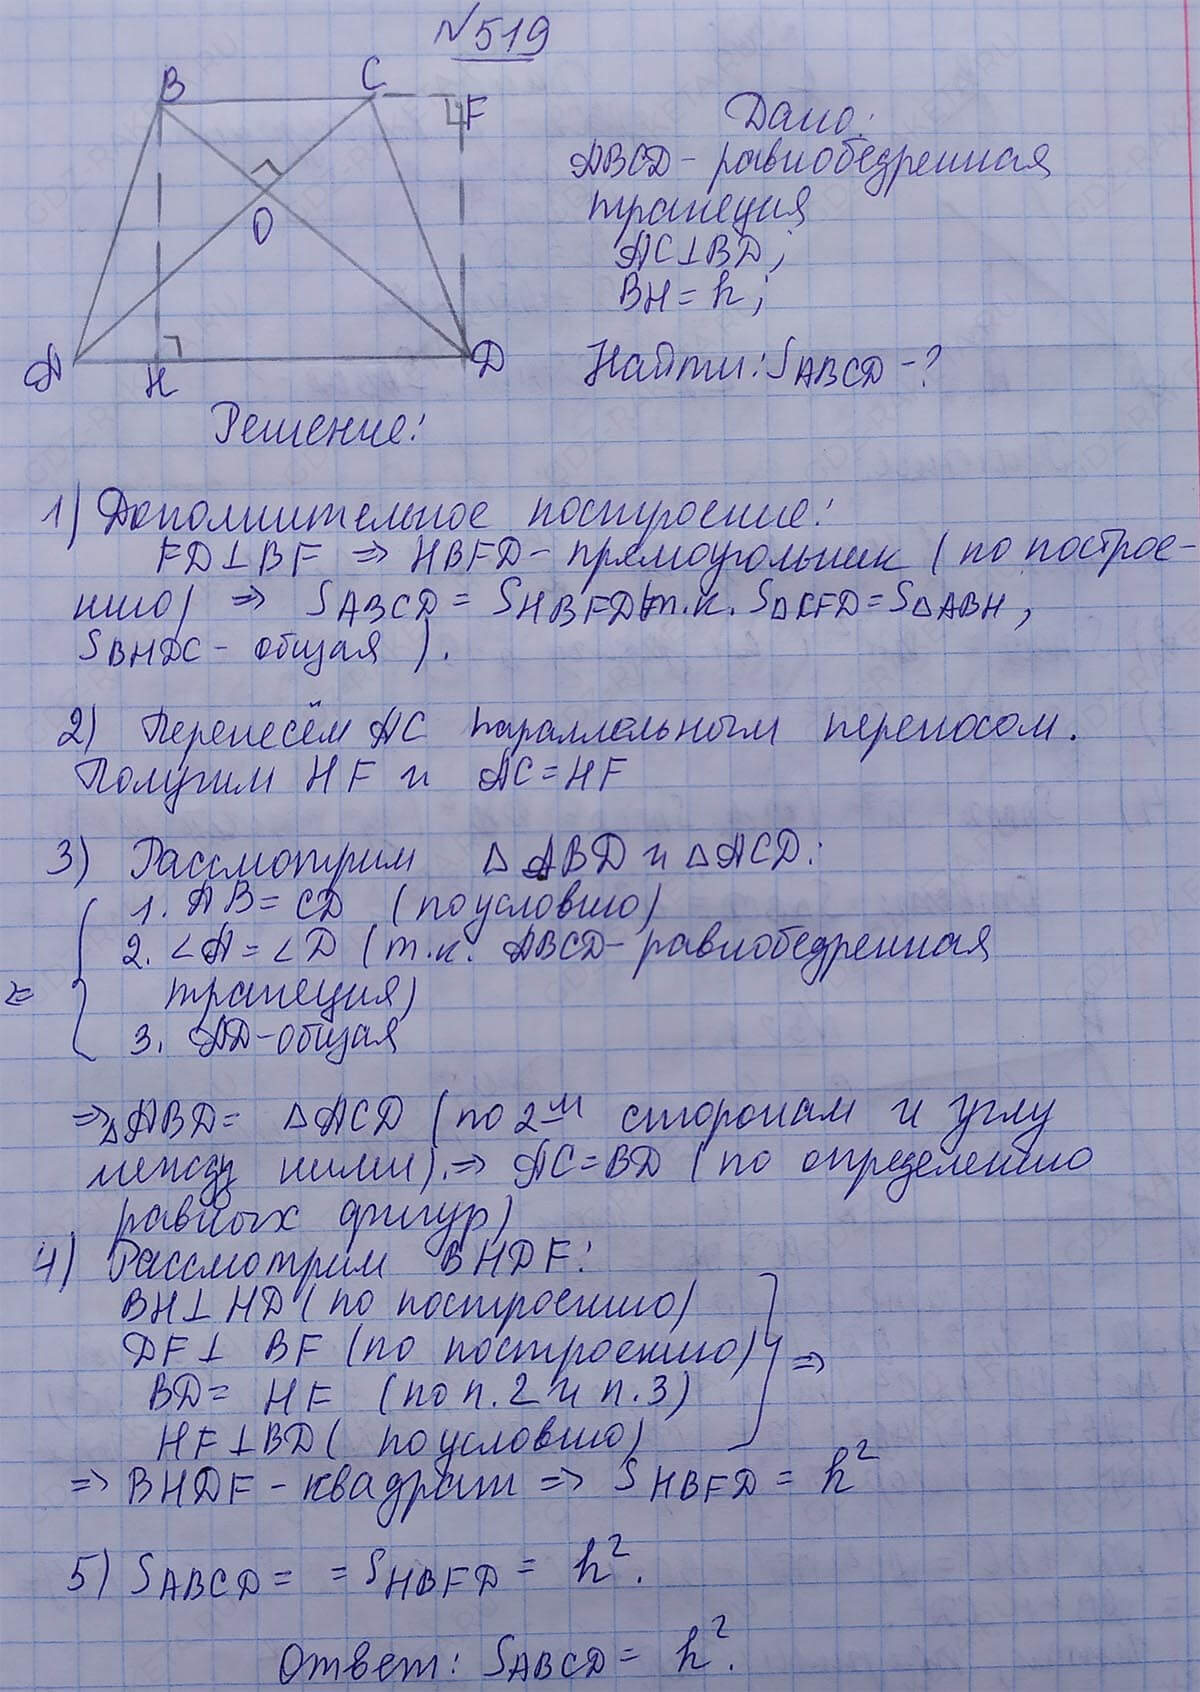 №519
B C F
O
A H D
Дано:
ABCD - равнобедренная
трапеция
AC⊥BD;
BH = h;
Найти: S ABCD - ?
Решение:
1) Дополнительное построение:
FD⊥BF ⇒ HBFD - прямоугольник (по построе-
нию) ⇒ S ABCD = S HBFD (т.к. S △CFD = S △ABH,
S BHDC - общая).
2) Перенесём AC параллельным переносом.
Получим HF и AC = HF
3) Рассмотрим △ABD и △ACD:
1. AB = CD (по условию)
2. ∠A = ∠D (т.к. ABCD - равнобедренная
трапеция)
3. AD - общая
⇒ △ABD = △ACD (по 2-м сторонам и углу
между ними). ⇒ AC = BD (по определению
равных фигур)
4) Рассмотрим BHDF:
BH⊥HD (по построению)
DF⊥ BF (по построению) ⇒
BD = HF (по п.2 и п.3)
HF⊥BD (по условию)
⇒ BHDF - квадрат ⇒ S HBFD = h²
5) S ABCD = = S HBFD = h².
Ответ: S ABCD = h².